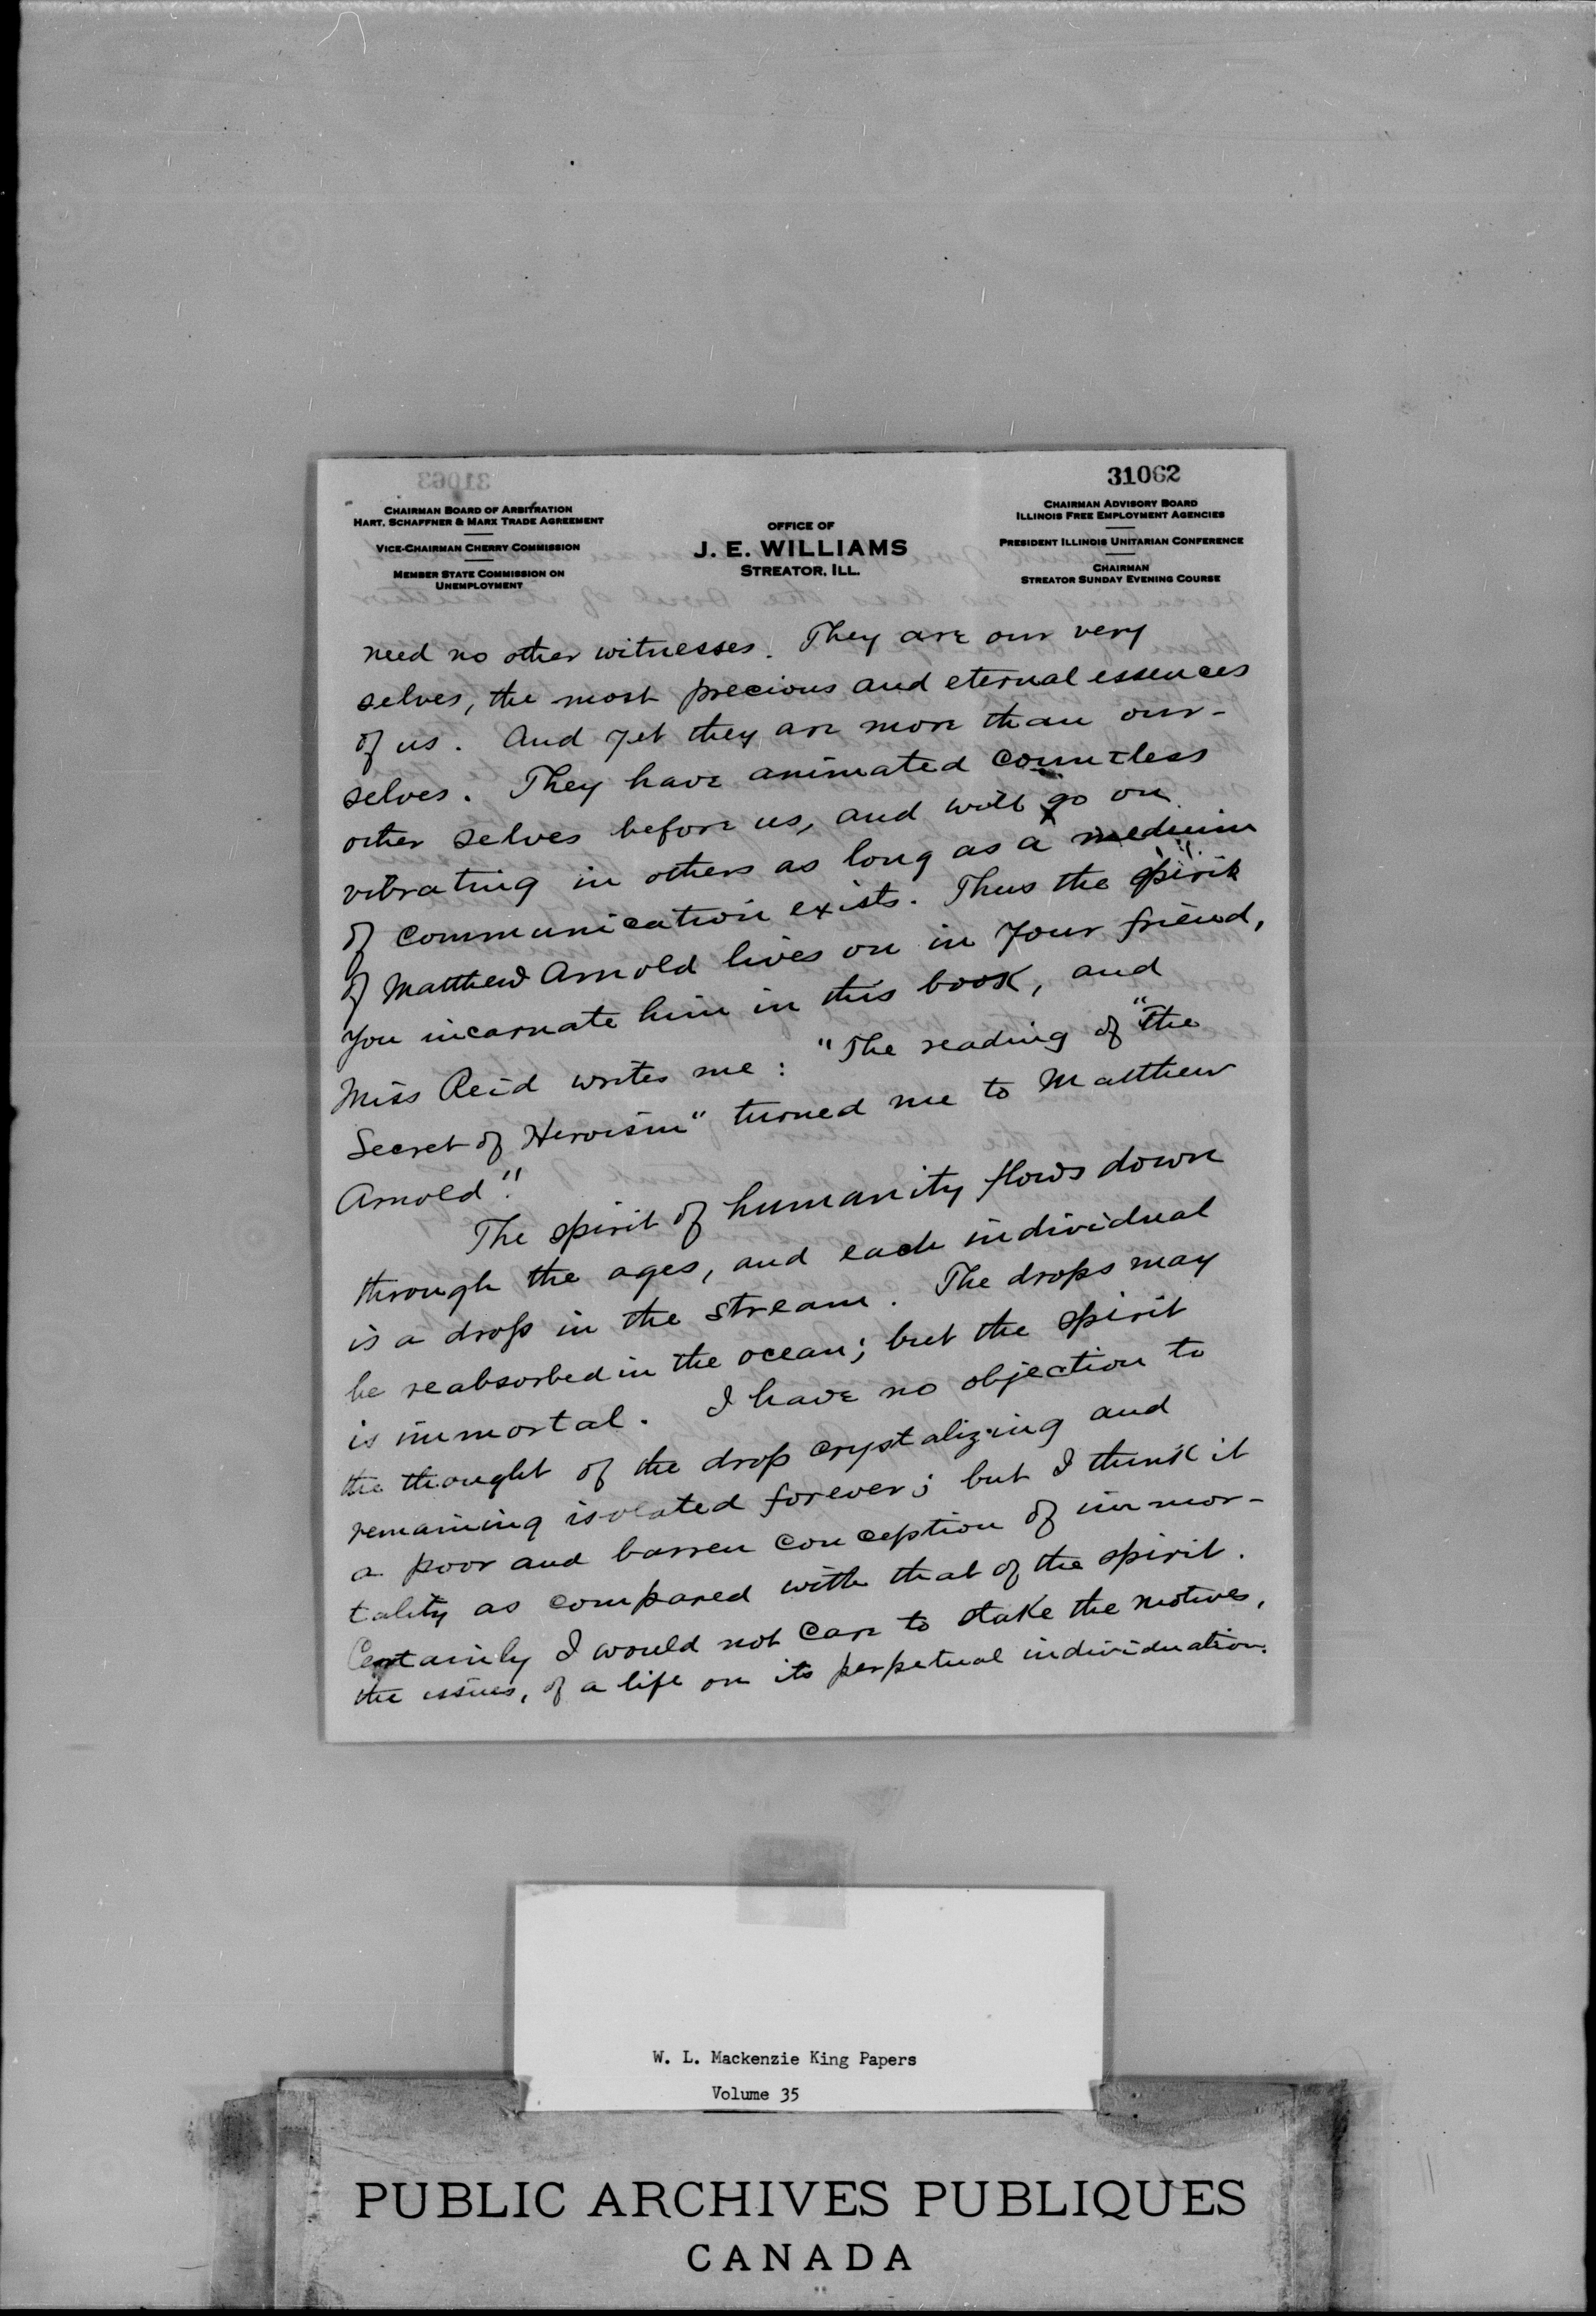 31063
31062
CHAIRMAN BOARD OF ARBITRATION
HART, SCHAFFNER & MARX TRADE AGREEMENT
VICE-CHAIRMAN CHERRY COMMISSION
MEMBER STATE COMMISSION ON
UNEMPLOYMENT
OFFICE OF
J. E. WILLIAMS
STREATOR, ILL.
CHAIRMAN ADVISORY BOARD
ILLINOIS FREE EMPLOYMENT AGENCIES
PRESIDENT ILLINOIS UNITARIAN CONFERENCE
CHAIRMAN
STREATOR SUNDAY EVENING COURSE
need no other witnesses. They are our very
selves, the most precious and eternal essences
of us. And yet they are more than our-
selves. They have animated countless
other selves before us, and will go on
vibrating in others as long as a medium
of communication exists. Thus the spirit
of Matthew Arnold lives on in your friend,
you incarnate him in this book, and
Miss Reid writes me: "The reading of "The
Secret of Heroism" turned me to Matthew
Arnold".
The spirit of humanity flows down
through the ages, and each individual
is a drop in the stream. The drops may
be reabsorbed in the ocean; but the spirit
is immortal. I have no objection to
the thought of the drop crystalizing and
remaining isolated forever; but I think it
a poor and barren conception of immor-
tality as compared with that of the spirit.
Certainly I would not care to stake the motives,
the issues, of a life on its perpetual individuation.
W. L. Mackenzie King Papers
Volume 35
PUBLIC ARCHIVES PUBLIQUES
CANADA